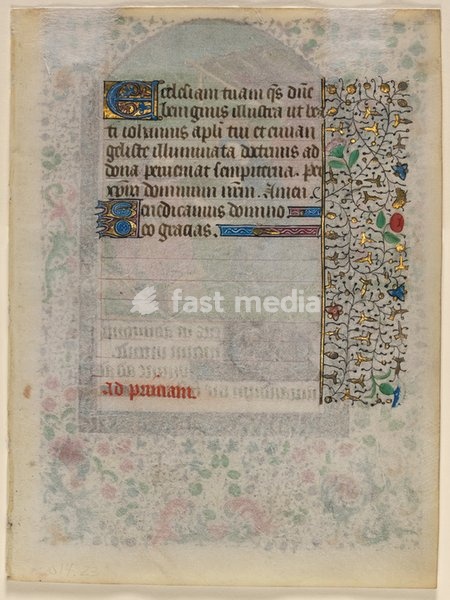 Ecclesiam tuam q̄s dūe
benignus illustra ut bea
ti iohannis apli tui et euuan
geliste illuminata doctrinis ad
dona perueniat sempiterna. Per
xpm dominum nr̄m. Amen.
Benedicamus domino
Deo gracias.
fast media
Ad primam.